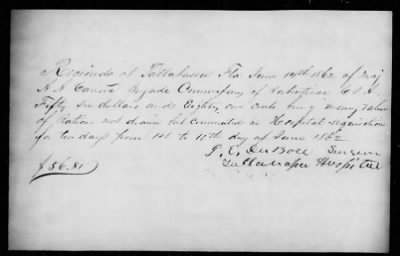 Received at Tallahassee Fla June 14th 1862 of Maj
A A Brigade Commissary of Subsistence C S A.
Fifty six dollars and Eighty one cents being money value
of rations not drawn but commuted in Hospital requisition
for ten days from 1st to 11th day of June 1862
$56.81 Surgeon
Tallahassee Hospital